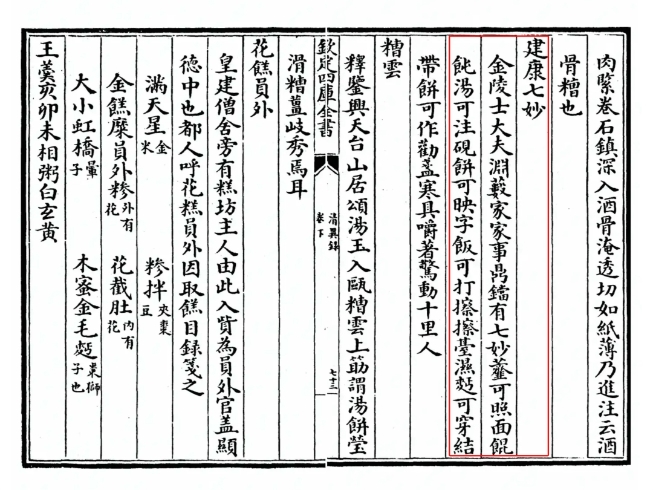 肉緊卷石鎮深入酒骨淹透切如紙薄乃進注云酒
骨糟也
建康七妙
金陵士大夫淵藪家家事鼎鐺有七妙虀可照面餛
飩湯可注硯餅可映字飯可打擦擦臺濕麪可穿結
帶餅可作勸盞寒具嚼著驚動十里人
糟雲
釋鑒興天台山居頌湯玉入甌糟雲上筯謂湯餅瑩
滑糟薑岐秀焉耳
欽定四庫全書
清異録
卷下
七十三
花餻員外
皇建僧舍旁有糕坊主人由此入貲為員外官蓋顯
德中也都人呼花糕員外因取餻目録箋之
滿天星金米 糝拌夾棗豆
金餻糜員外糝外有花 花截肚内有花
大小虹橋暈子 木蜜金毛麪棗獅子也
王羹亥卯未相粥白玄黄